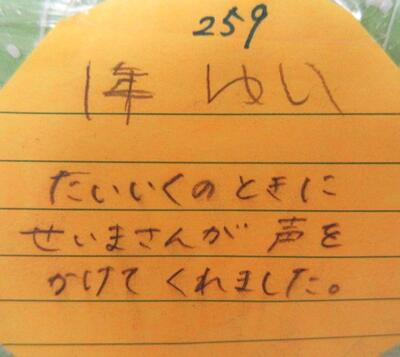 259
1年 ゆい
たいいくのときに
せいまさんが 声を
かけて くれました。